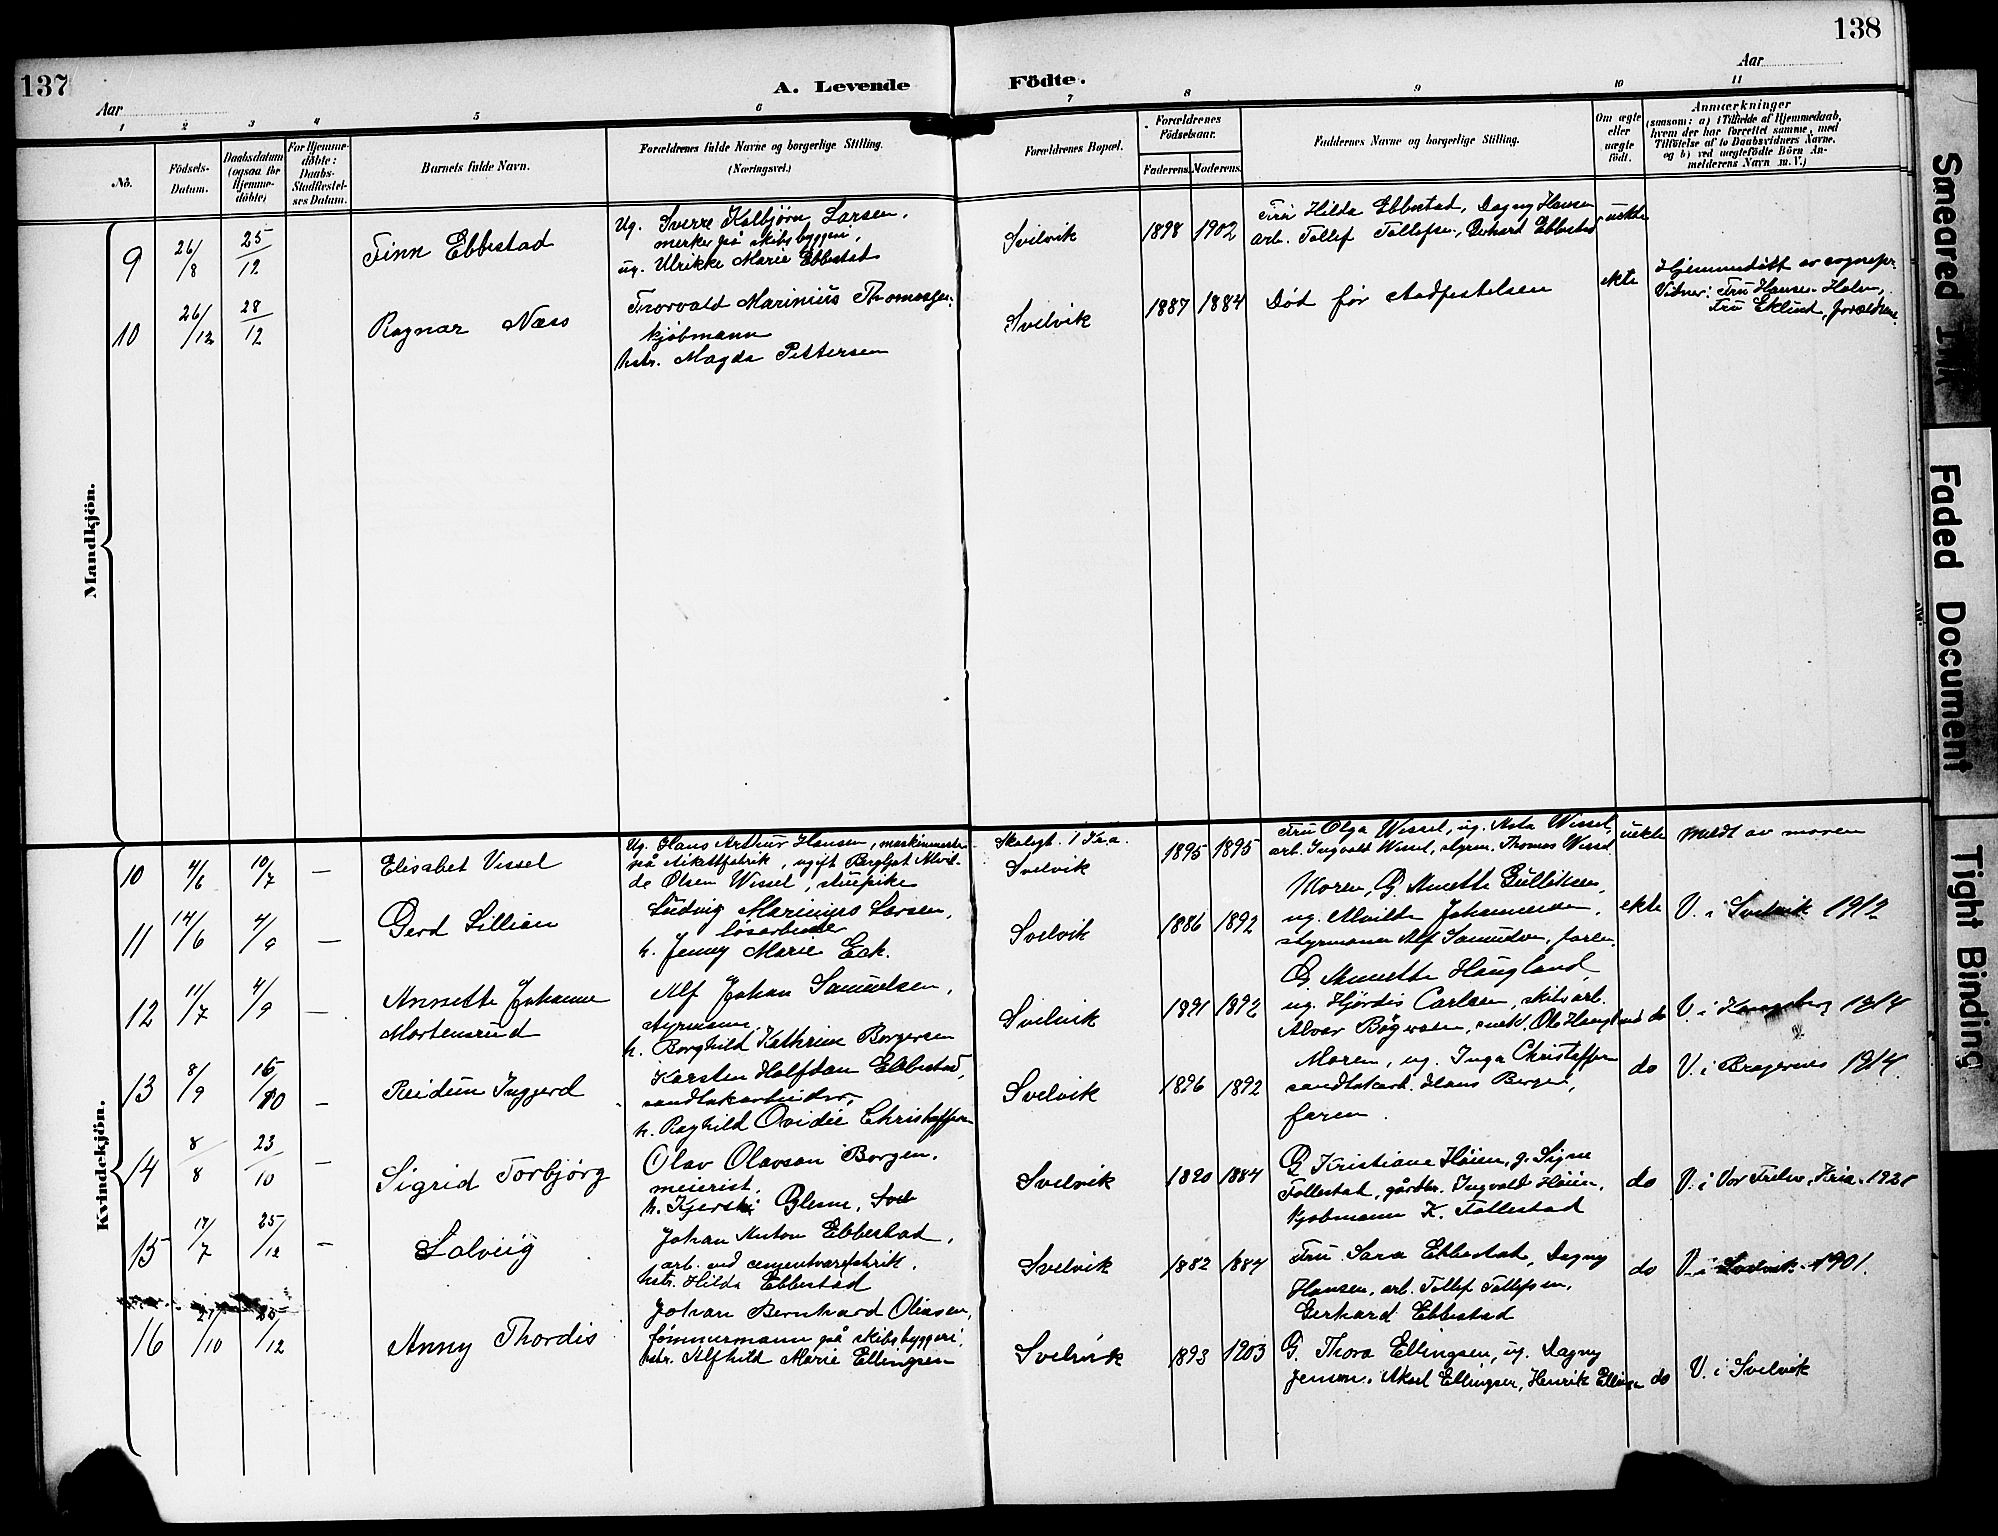 137
138
A. Levende Födte.
Aar
Aar
1 2 3 4 5 6 7 8 9 10 11
No.
Födsels-Datum.
Daabsdatum (ogsaa for Hjemme-döbte)
For Hjemme-döbte: Daabs-Stadfæstel-ses Datum.
Barnets fulde Navn.
Forældrenes fulde Navne og borgerlige Stilling.
(Næringsvei.)
Forældrenes Bopæl.
Forældrenes Födselsaar.
Faderens. Moderens.
Faddernes Navne og borgerlige Stilling.
Om ægte eller uægte födt.
Anmærkninger
(saasom: a) i Tilfælde af Hjemmedaab,
hvem der har forrettet samme, med
Tilföielse af to Daabsvidners Navne.
og b) ved uegtefödte Börn An-
melderens Navn m. V.)
Mandkjön.
9 26/8 25/12 Finn Ebbestad
Ug. Sverre Kolbjørn Larsen,
merker på skibsbyggeri,
ug. Ulrikke Marie Ebbestad
Svelvik 1898 1902
Fru Hilda Ebbestad, Dagny Hansen
arb. Tollef Tollefsen, Gerhard Ebbestad
uekte
10 26/12 28/12 Ragnar Næss
Thorvald Marinius Thomassen
kjøbmann
hstr. Magda Pettersen
Svelvik 1887 1884
Død før stadfestelsen
ekte
Hjemmedøpt av sognepr.
Vitner: Fru Hansen-Holm,
Fru Eklund, forældrene
Kvindekjön.
10 4/6 10/7 — Elisabet Vissel
Ug. Hans Arthur Hansen, maskinmester
på stikattfabrik, ugift Bergljot Alvil-
de Olsen Wissel, stuepike
Svelvik 1895 1895
Fru Olga Wissel, ug. Asta Wissel,
arb. Ingvald Wissel, styrm. Thomas Wissel
uekte
Meldt av moren
11 14/6 4/9 — Gerd Lillian
Ludvig Marinius Larsen,
løsarbeider
h. Jenny Marie Eck.
Svelvik 1886 1892
Moren, G. Annette Gulliksen,
ug. Alvilda Johannessen,
styrmann Alf Samuelsen, faren.
ekte
V. i Svelvik 1912
12 11/7 4/9 — Annette Johanne
Mortensrud
Alf Johan Samuelsen,
styrmann,
h. Borghild Kathrine Borgersen
Svelvik 1891 1892
G. Annette Haugland,
ug. Hjørdis Carlsen, skibsarb.
do
V. i Kongsberg 1914
13 8/9 16/10 — Reidun Inggerd
Karsten Halfdan Ebbestad,
sandtakarbeider,
h. Raghild Ovidie Christoffersen
Svelvik 1896 1892
Moren, ug. Inga Christoffersen
sandtakarb. Hans Berger,
faren.
do
V. i Bragernes 1914
14 8/8 23/10 — Sigrid Torbjørg
Olav Olavson Borgen,
meierist.
Svelvik 1890 1884
G. Kristiane Høien, g. Signe
Follestad, gårdbr. Ingvald Høien,
kjøbmann K. Follestad
do
15 17/7 25/12 — Solveig
Johan Anton Ebbestad,
arb. ved cementvarefabrik,
hstr. Hilda Ebbestad
Svelvik 1882 1884
Fru Sara Ebbestad, Dagny
Hansen, arb. Tollef Tollefsen,
Gerhard Ebbestad
do
V. i Svelvik 1901.
16 27/10 25/12 Anny Thordis
Johan Bernhard Oliasen,
tømmermann på skibsbyggeri,
hstr. Alfhild Marie Ellingsen
Svelvik 1893 1903
G. Thora Ellingsen, ug. Dagny
Jensen, Aksel Ellingsen, Henrik Ellingsen
do
V. i Svelvik
Smeared Ink
Faded Document
Tight Binding